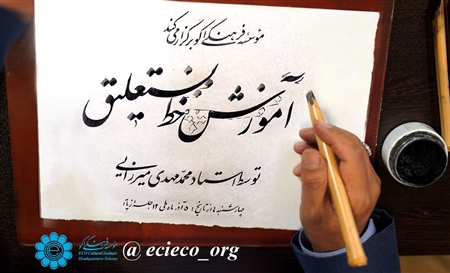 مؤسسه فرهنگی اکو برگزار می کند
آموزش خط نستعلیق
توسط استاد محمد مهدی میرزایی
چهارشنبه ها از تاریخ: ۵ آذر ماه ۱۲ جلسه
مؤسسه فرهنگی اکو
ECO Cultural Institute
Headquarters-Tehran
@ ecieco_org